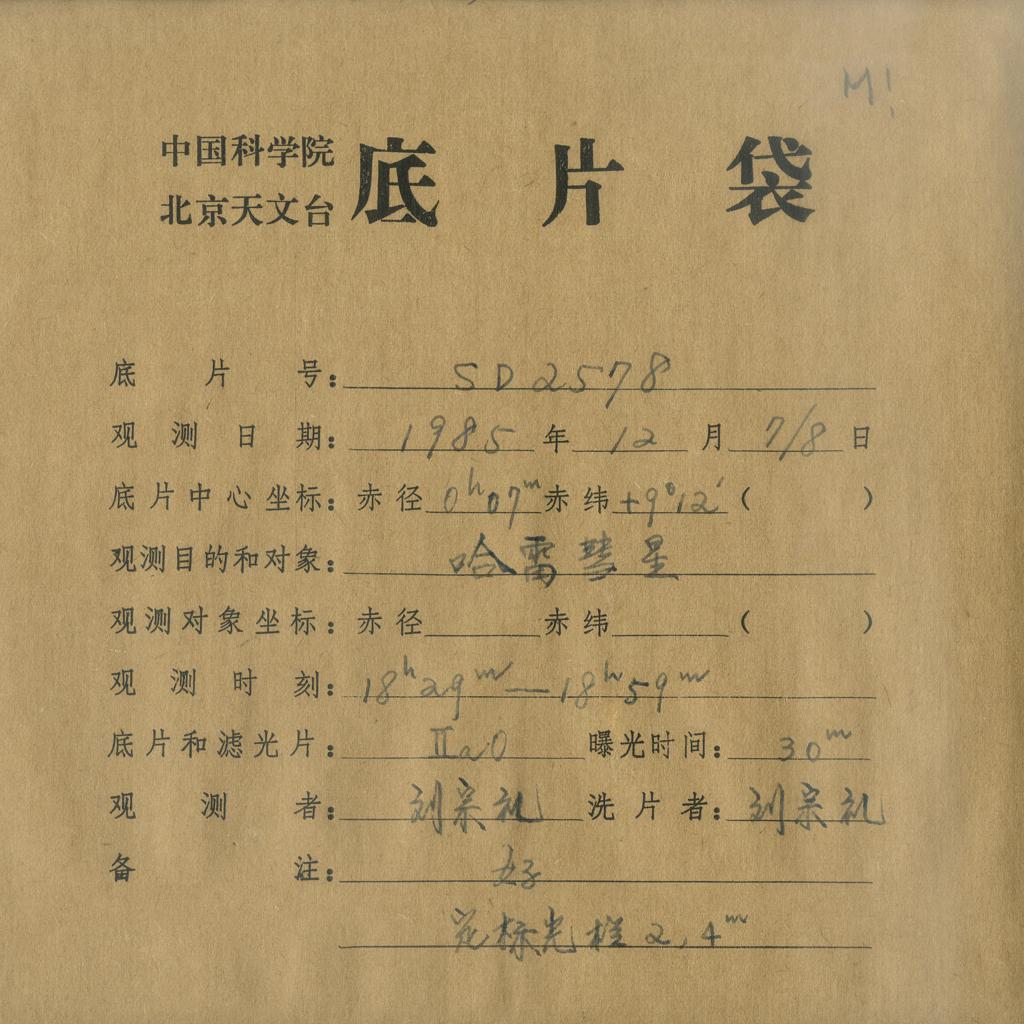 M!
中国科学院
北京天文台 底片袋
底片号: SD2578
观测日期: 1985年12月7/8日
底片中心坐标: 赤径 0h07m 赤纬 +9°12′ ( )
观测目的和对象: 哈雷彗星
观测对象坐标: 赤径 赤纬 ( )
观测时刻: 18h29m—18h59m
底片和滤光片: IIaO 曝光时间: 30m
观测者: 刘宗礼 洗片者: 刘宗礼
备注: 好
标光 2,4m